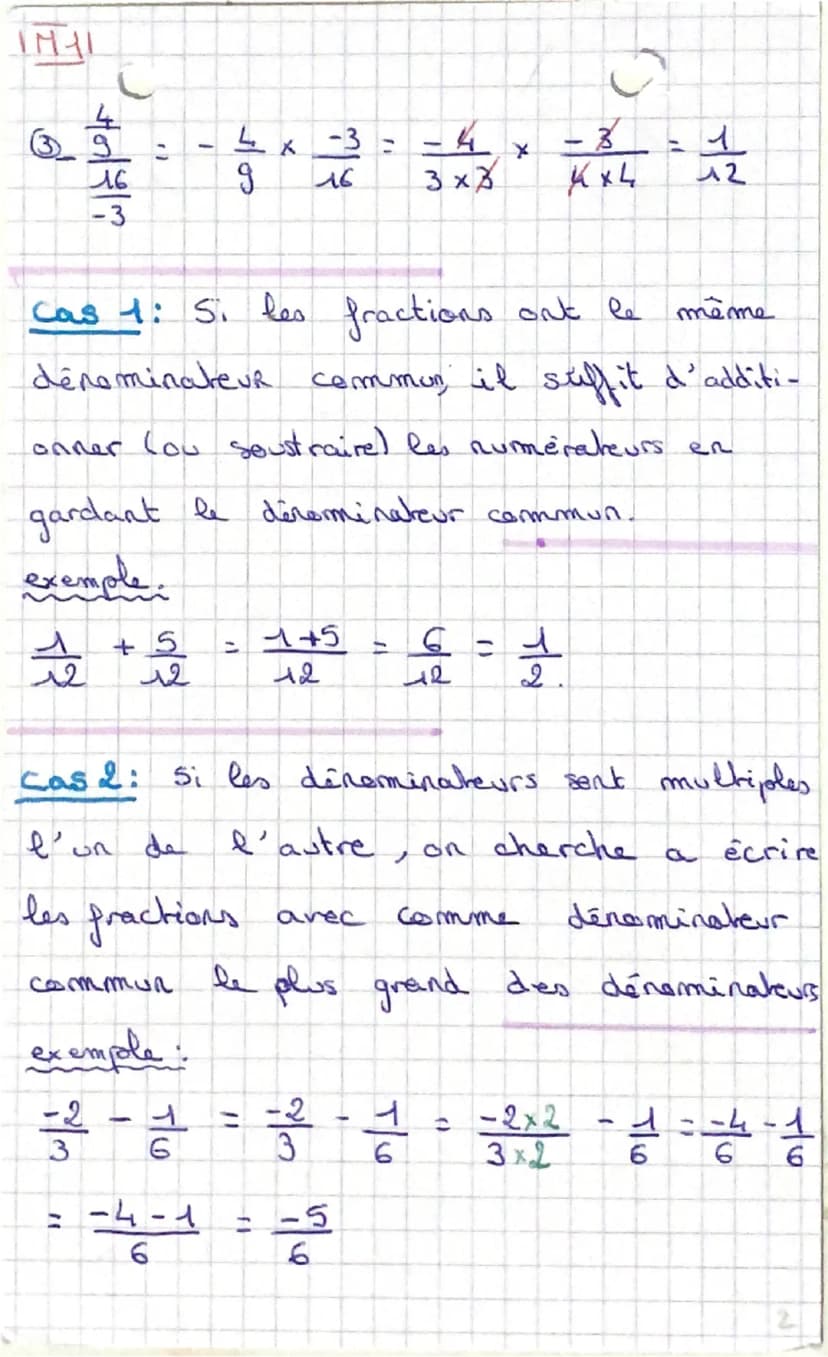 |M1|
③_ 4/9 / 16/-3 = - 4/9 × -3/16 = -4/3×3 × -3/4×4 = 1/12
Cas 1: Si les fractions ont le même
dénominateur commun, il suffit d'additi-
onner (ou soustraire) les numérateurs en
gardant le dénominateur commun.
exemple.
1/12 + 5/12 = 1+5/12 = 6/12 = 1/2.
Cas 2: Si les dénominateurs sont multiples
l'un de l'autre, on cherche a écrire
les fractions avec comme dénominateur
commun le plus grand des dénominateurs
exemple :
-2/3 - 1/6 = -2/3 - 1/6 = -2×2/3×2 - 1/6 = -4/6 - 1/6
= -4-1/6 = -5/6
2